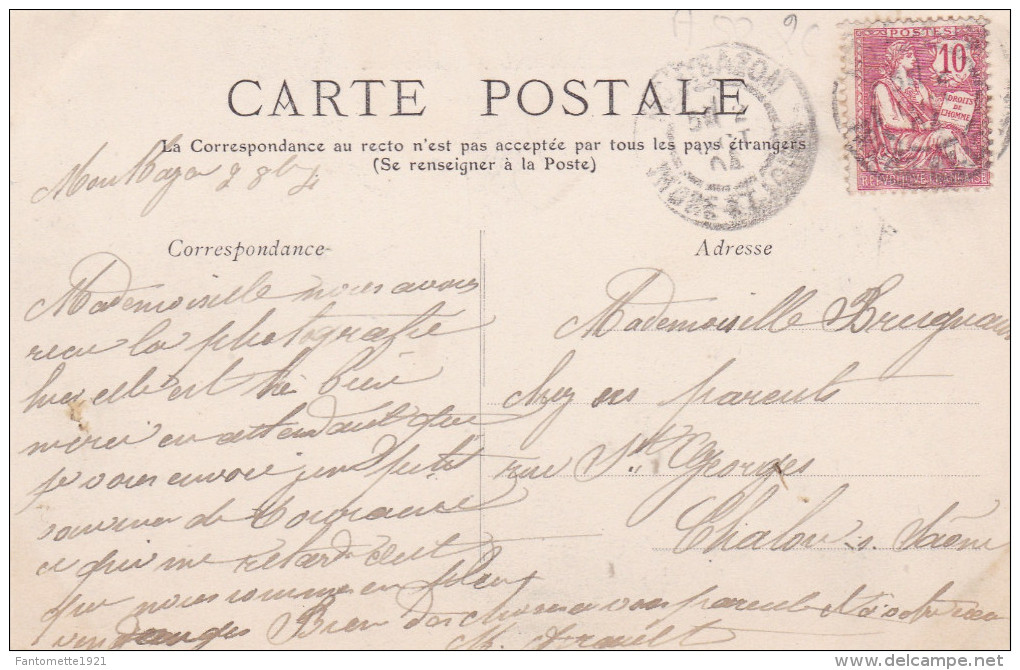 CARTE POSTALE
La Correspondance au recto n'est pas acceptée par tous les pays étrangers
(Se renseigner à la Poste)
POSTES
10
DROITS
DE
L'HOMME
REPUBLIQUE FRANÇAISE
MONTBAZON
2
OCT
04
INDRE ET LOIRE
Montbazon 2 8bre
Correspondance
Mademoiselle nous avons
recu la photografie
hier elle est très bien
merci en attendant que
je vous envoie un petit
souvenir de Touraine
ce qui me retarde c'est
que nous sommes en pleins
vendanges Bien des choses a vos parents
M. Arault
Adresse
Mademoiselle Brugnaux
chez ses parents
rue St Georges
Chalon s. Saône
Fantomette1921
delcampe.net